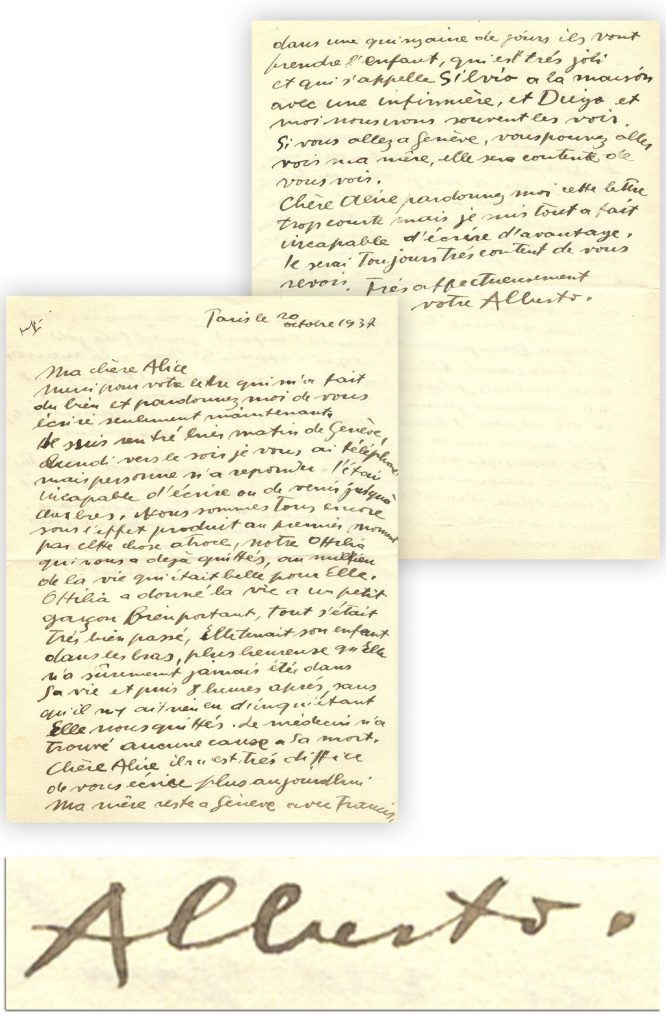 Paris le 20 octobre 1937
Ma chère Alice
Merci pour votre lettre qui m'a fait
du bien et pardonnez moi de vous
écrire seulement maintenant.
Je suis rentré hier matin de Genève,
Lundi vers le soir je vous ai téléphoné
mais personne n'a repondu. J'étais
incapable d'écrire ou de venir jusqu'à
Nous sommes tous encore
sous l'effet produit au premier moment
par cette chose atroce, notre Ottilia
qui nous a dejà quittés, au milieu
de la vie qui était belle pour Elle.
Ottilia a donné la vie a un petit
garçon Bien portant, tout s'était
très bien passé, Elle tenait son enfant
dans les bras, plus heureuse qu'Elle
n'a sûrement jamais étée dans
Sa vie et puis 8 heures après, sans
qu'il n'y ait rien eu d'inquiétant
Elle nous quittés. Le médecin n'a
trouvé aucune cause a Sa mort.
Chère Alice il m'est très difficile
de vous écrire plus aujourd'hui
Ma mère reste a Genève avec Francis,
dans une quinzaine de jours ils vont
prendre l'enfant, qui est trés joli
et qui s'appelle Silvio a la maison
avec une infirmière, et Diego et
moi nous irons souvent les voir.
Si vous allez a Genève, vous pouvez aller
voir ma mère, elle sera contente de
vous voir.
Chère Alice pardonnez moi cette lettre
trop courte mais je suis tout a fait
incapable d'écrire d'avantage.
Je serai toujours trés content de vous
revoir. Trés affectueusement
votre Alberto.
Alberto.